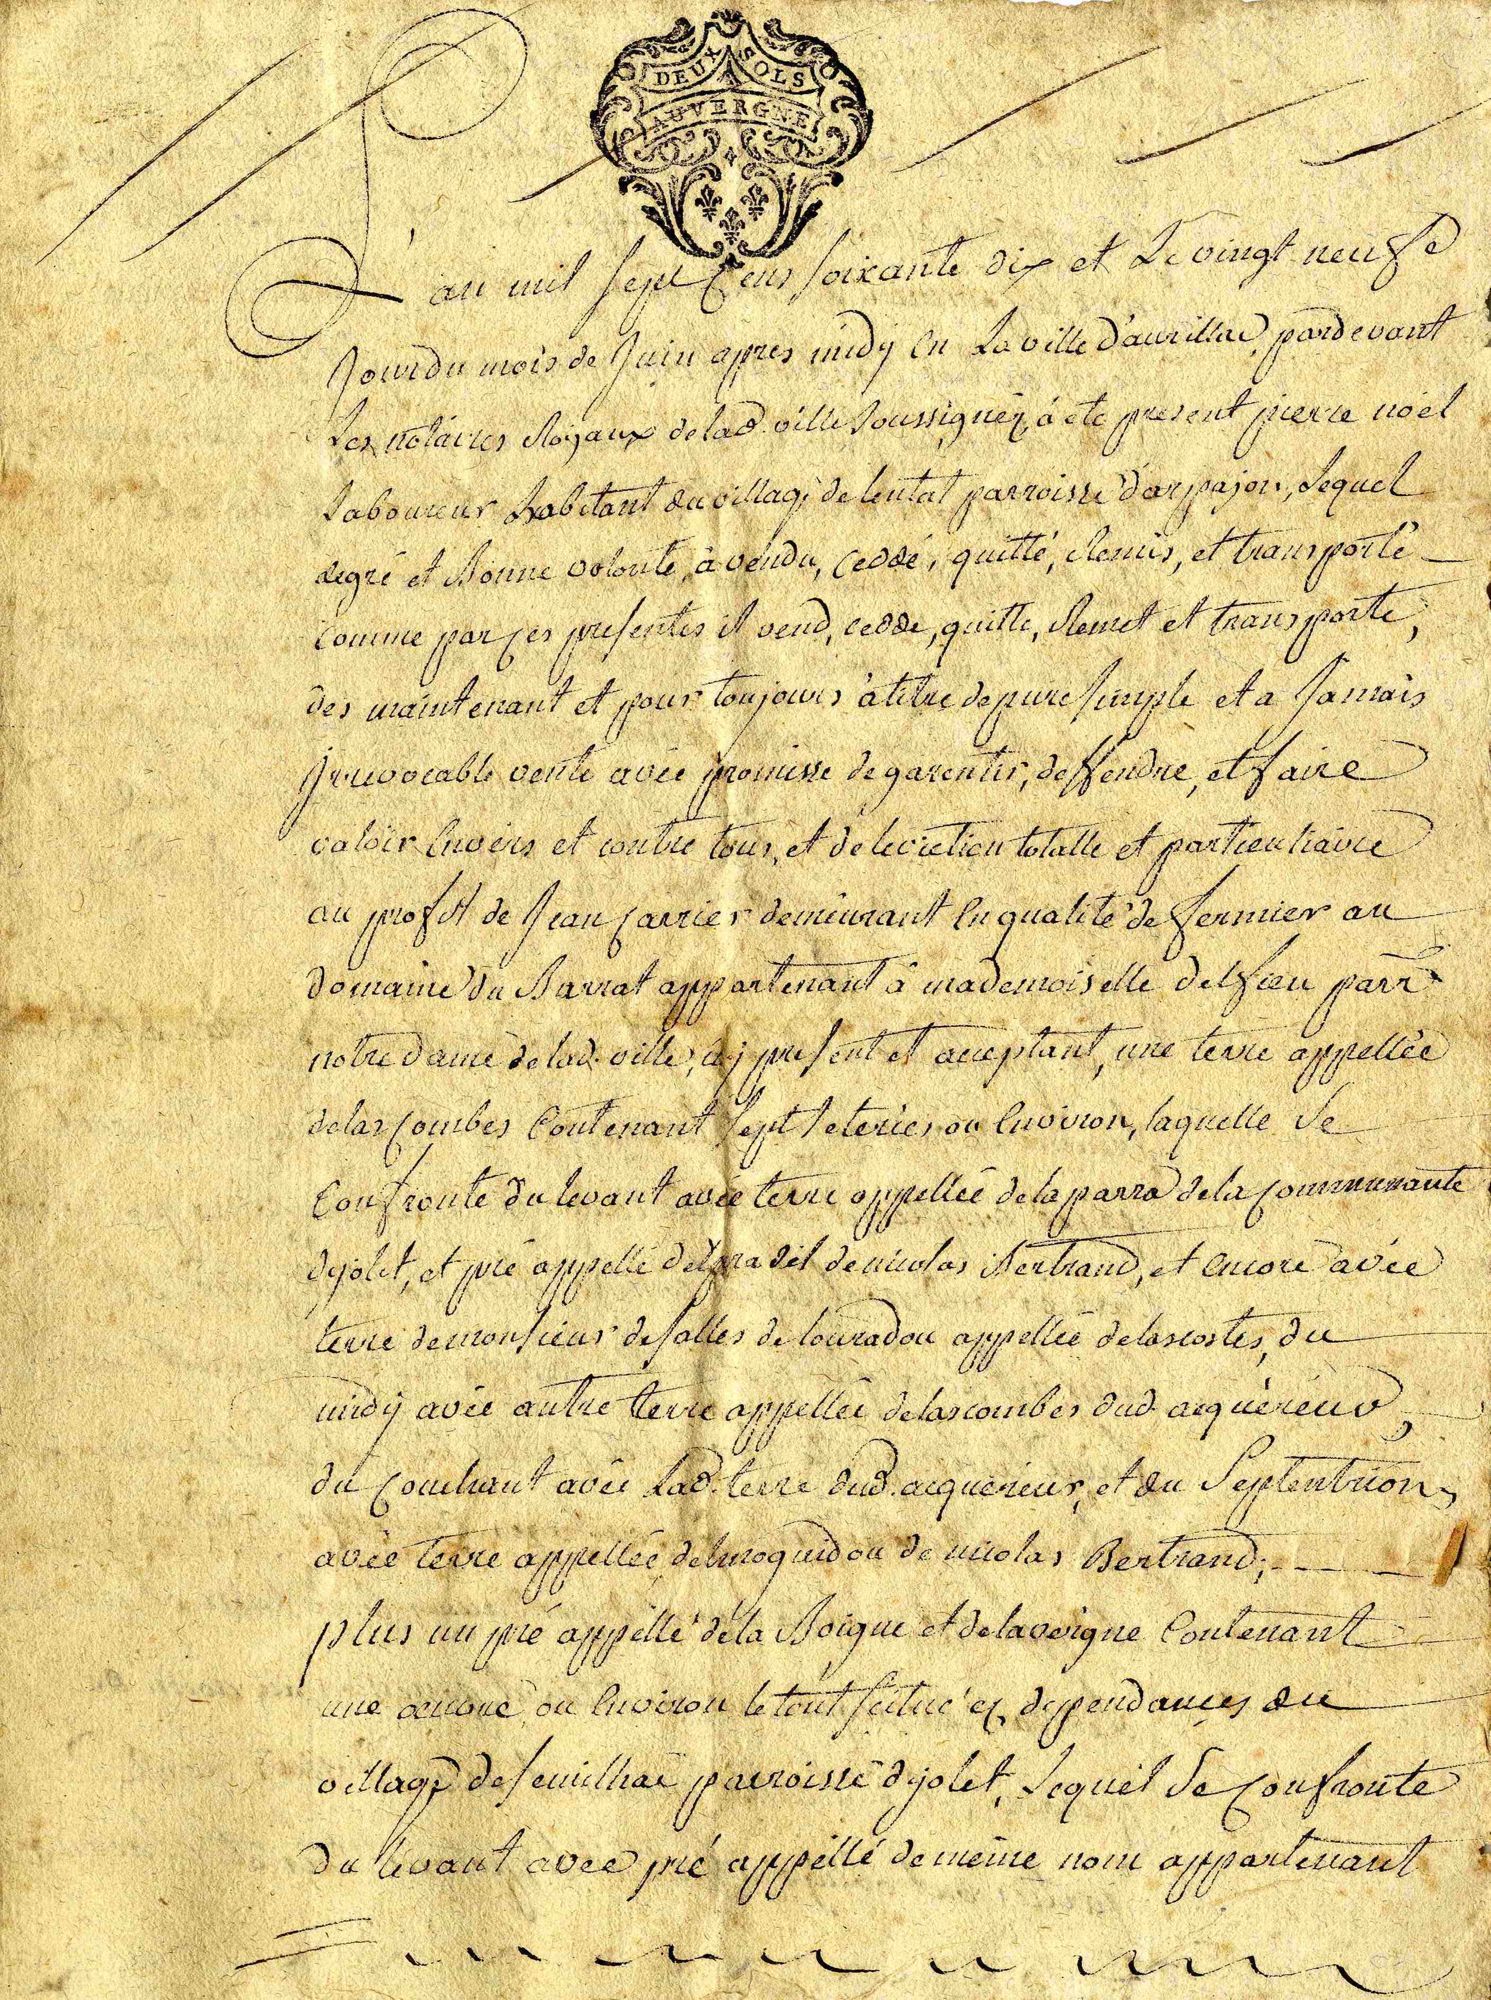 DEUX SOLS
AUVERGNE
L'an mil sept cens soixante dix et Le vingt neufe
Jour du mois de Juin apres midÿ en La ville d'aurillac, pardevant
Les notaires Royaux de lad. ville soussignéz, à eté present pierre noel
Laboureur habitant du village de lentat parroisse d'arpajon, Lequel
degré et Bonne volonté, à vendu, ceddé, quitté, Remis, et transporté
comme par ces presentes il vend, cedde, quitte, Remet et transporte,
des maintenant et pour toujours à titre de pure simple et a Jamais
Jrrevocable vente avec promisse de garentir, deffendre, et faire
valoir Envers et contre tous, et de leviction totalle et particuliaire
au profit de Jean Carrier demeurant En qualité de fermier au
domaine du Barrat appartenant à mademoiselle delfieu parr.
notre dame de lad. ville, içy present et acceptant, une terre appellée
de las Combes Contenant sept seteries ou Environ, laquelle se
Confronte du levant avéc terre appellée de la parra de la communauté
dyolet, et pré appellé del pradel de nicolas Bertrand, et encore avéc
terre de monsieur de salles de louradou appellée de las costes, du
midÿ avéc autre terre appellée de las combes dud. acquéreur,
du Couchant avéc Lad. terre dud. acquereur, et du Septentrion
avéc terre appellée de nicolas Bertrand;
plus un pré appellé de la Boigue et de la vergne Contenant
une œuvre ou Environ le tout scitué éz dependances du
village de semilhac parroisse dyolet, Lequel se Confronte
du levant avec pré appellé de même nom appartenant